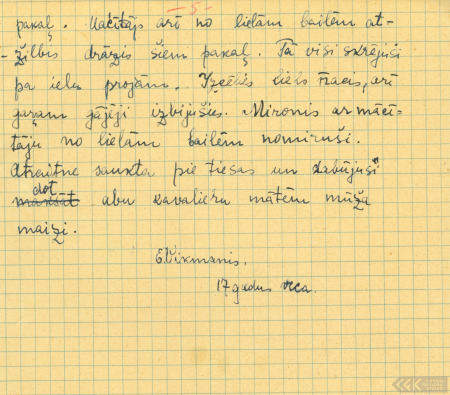 -5-
pakaļ. Mācītājs arī no lielām bailēm at-
žilbis drāzis šiem pakaļ. Tā visi skrējuši
pa ielu projām. Izcēlies liels tracis, arī
garām gājēji izbijušies. Mironis ar mācī-
tāju no lielām bailēm nomiruši.
Atraitne saukta pie tiesas un dabūjusi
dot
maksāt abu kavalieru mātēm mūža
maizi.
E. Vikmanis.
17 gadus veca.